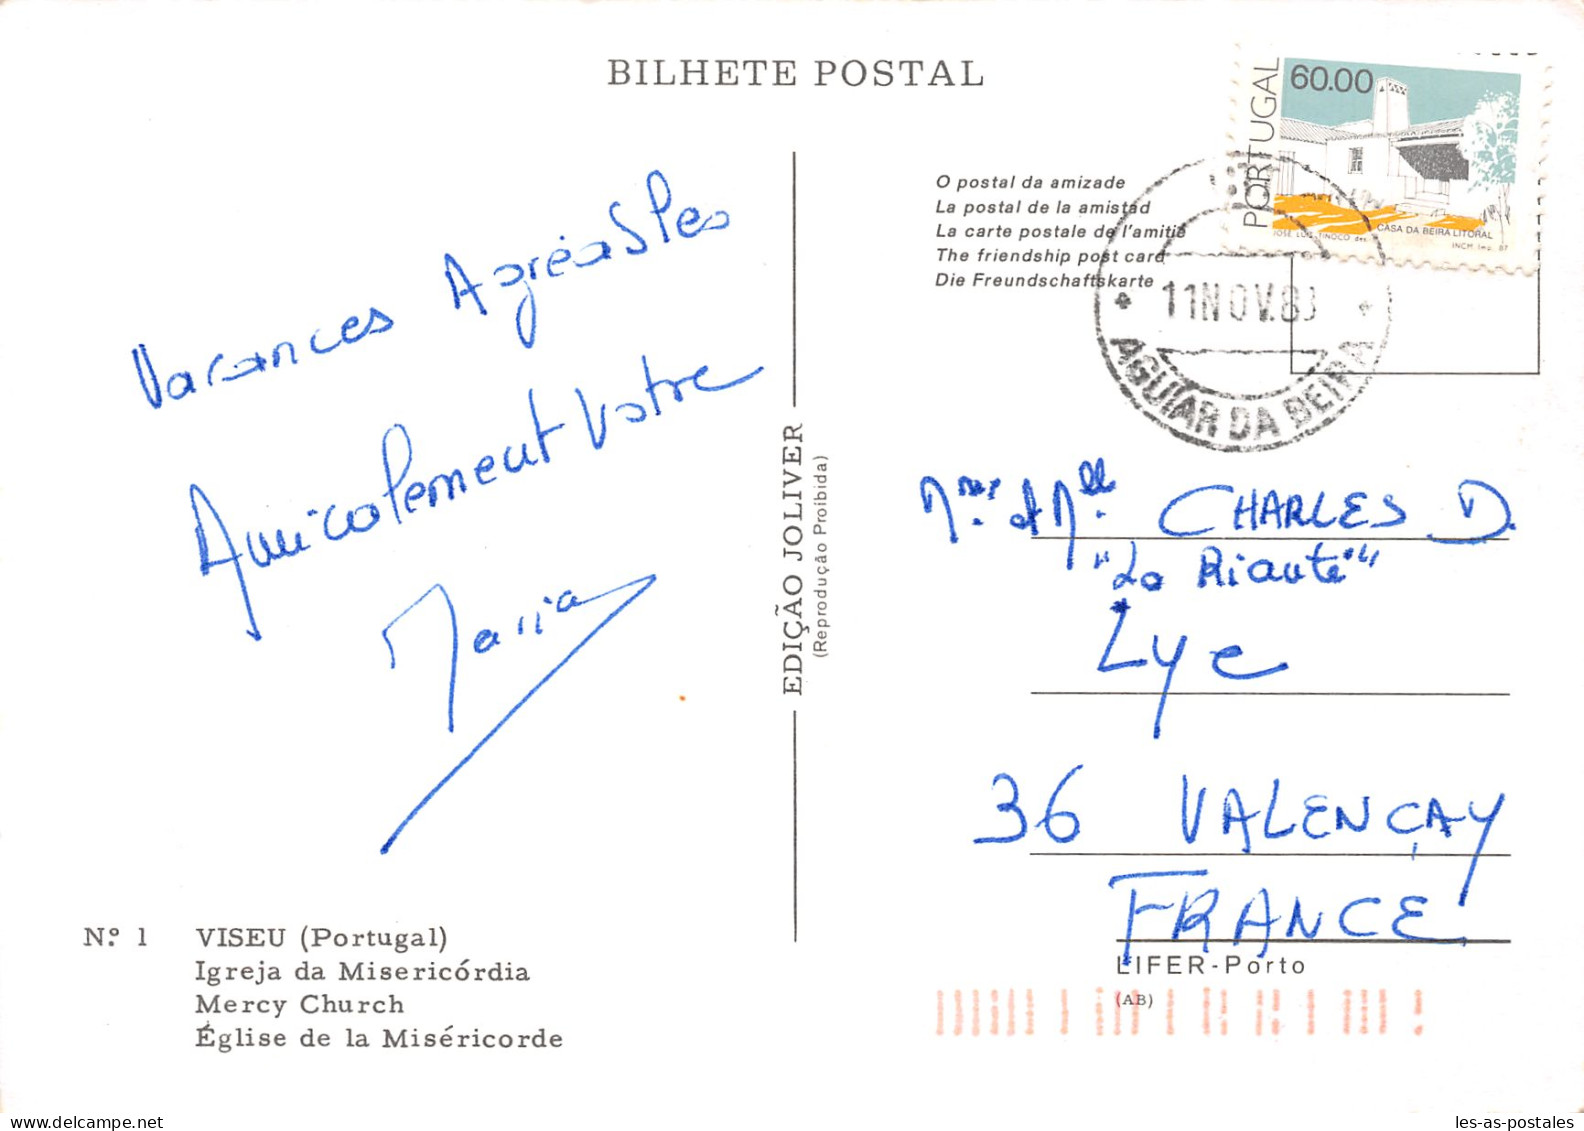 BILHETE POSTAL
PORTUGAL
60.00
CASA DA BEIRA LITORAL
JOSÉ LUIS TINOCO des.
INCM Imp. 87
O postal da amizade
La postal de la amistad
La carte postale de l'amitié
The friendship post card
Die Freundschaftskarte
11 NOV.8
AGUIAR DA BEIRA
Vacances Agréables
Amicalement Votre
Maria
EDIÇÃO JOLIVER
(Reprodução Proibida)
Mme et Mlle CHARLES D.
"La Riante"
Lye
36 VALENÇAY
FRANCE
LIFER-Porto
(AB)
N.º 1 VISEU (Portugal)
Igreja da Misericórdia
Mercy Church
Église de la Miséricorde
les-as-postales